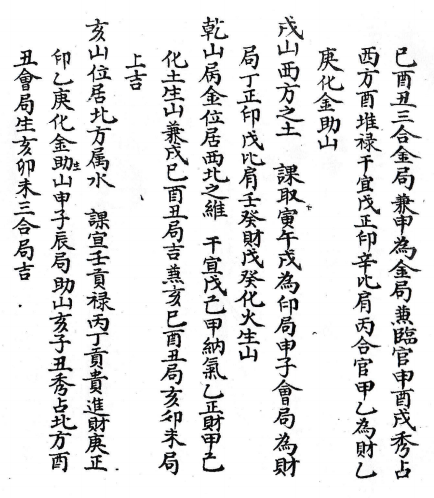 巳酉丑三合金局兼申為金局兼臨官申酉戌秀占
西方酉堆禄干宜戊正印辛比肩丙合官甲乙為財乙
庚化金助山
戌山西方之土　課取寅午戌為印局申子會局為財
局丁正印戊比肩壬癸財戊癸化火生山
乾山屬金位居西北之維　干宜戊己甲納氣乙正財甲己
化土生山兼戌巳酉丑局吉兼亥巳酉丑局亥卯未局
上吉
亥山位居北方属水　課宜壬貢禄丙丁貢貴進財庚正
印乙庚化金助生山申子辰局助山亥子丑秀占北方酉
丑會局生亥卯未三合局吉